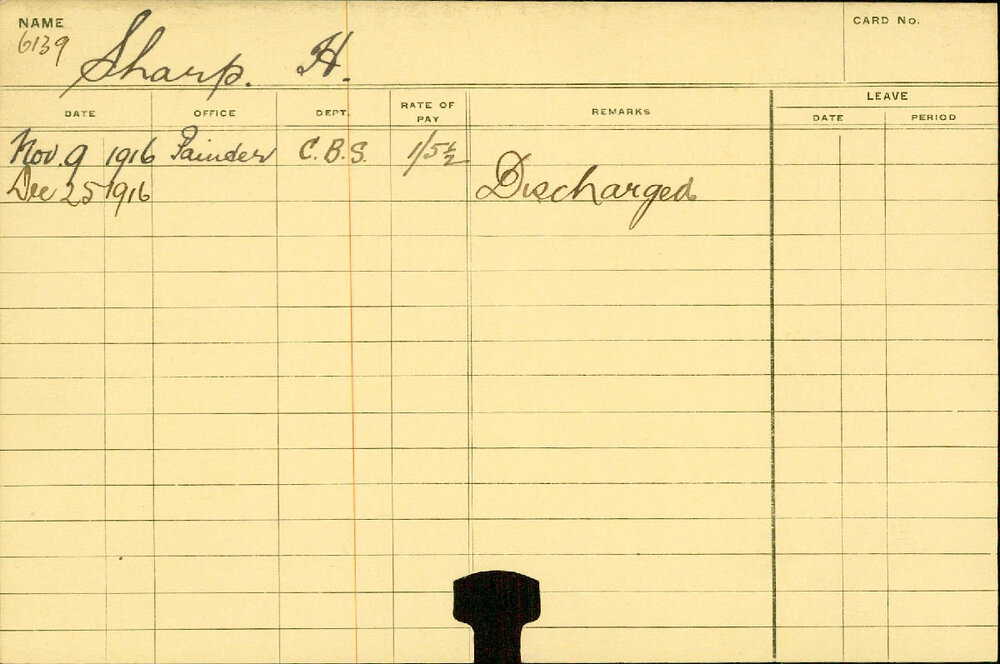 NAME
CARD No.
6139
Sharp. H.
DATE OFFICE DEPT. RATE OF PAY REMARKS LEAVE
DATE PERIOD
Nov. 9 1916 Painder C.B.S. 1/5½
Dec 25 1916 Discharged